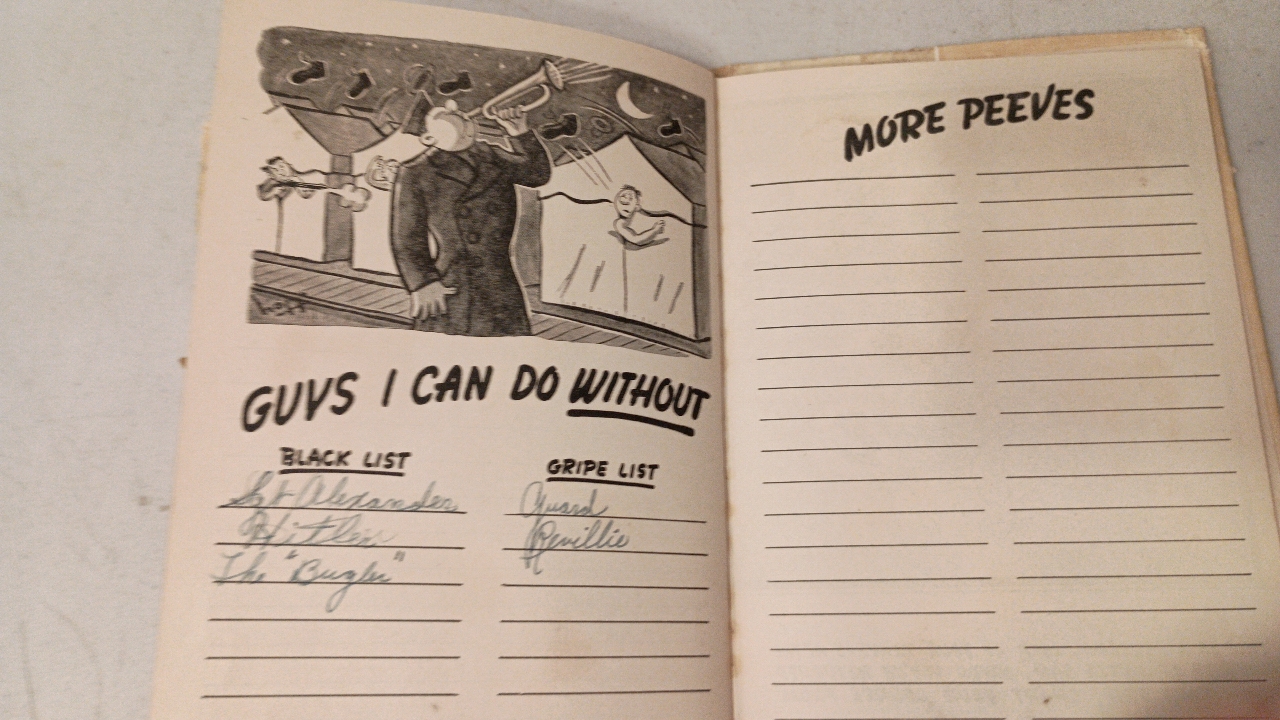 GUYS I CAN DO WITHOUT
BLACK LIST
Sgt Alexander
Hitler
The "Bugler"
GRIPE LIST
Guard
Revillie
MORE PEEVES